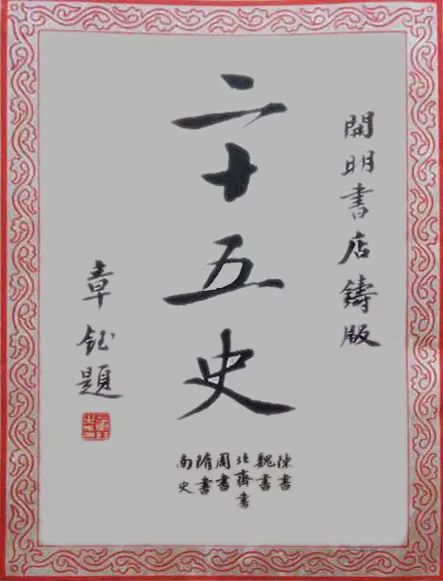 開明書店鑄版
二十五史
陳書
魏書
北齊書
周書
隋書
南史
章鈺題